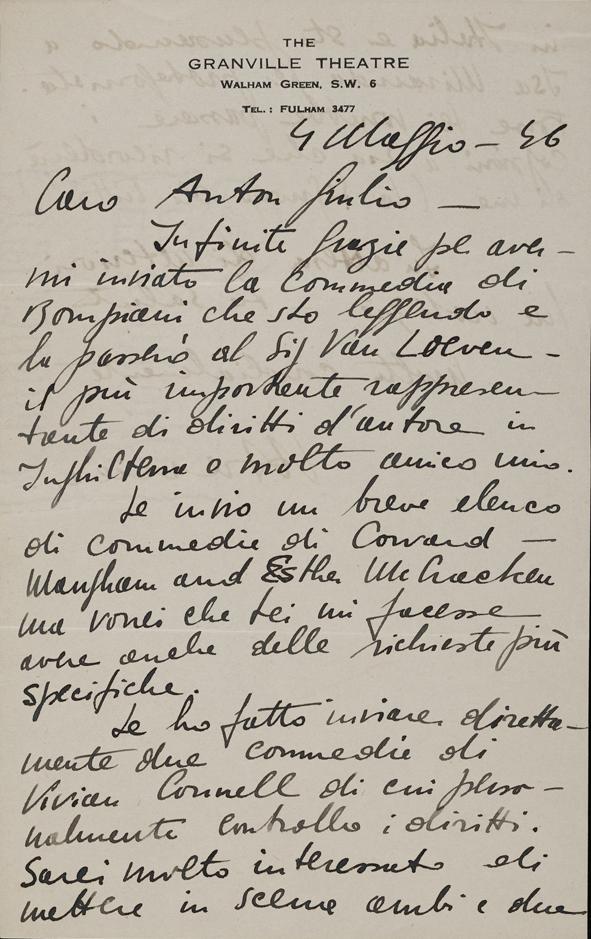 THE
GRANVILLE THEATRE
WALHAM GREEN, S.W. 6
TEL.: FULHAM 3477
4 Maggio – 46
Caro Anton Giulio —
Infinite grazie per aver-
mi inviato la commedia di
Bompiani che sto leggendo e
la passerò al Sig Van Loeven –
il più importante rappresen-
tante di diritti d'autore in
Inghilterra e molto amico mio.
Le invio un breve elenco
di commedie di Coward –
Maugham and Esther McCracken
ma vorrei che Lei mi facesse
avere anche delle richieste più
specifiche.
Le ho fatto inviare diretta-
mente due commedie di
Vivian Connell di cui perso-
nalmente controllo i diritti.
Sarei molto interessato di
mettere in scena ambi e due